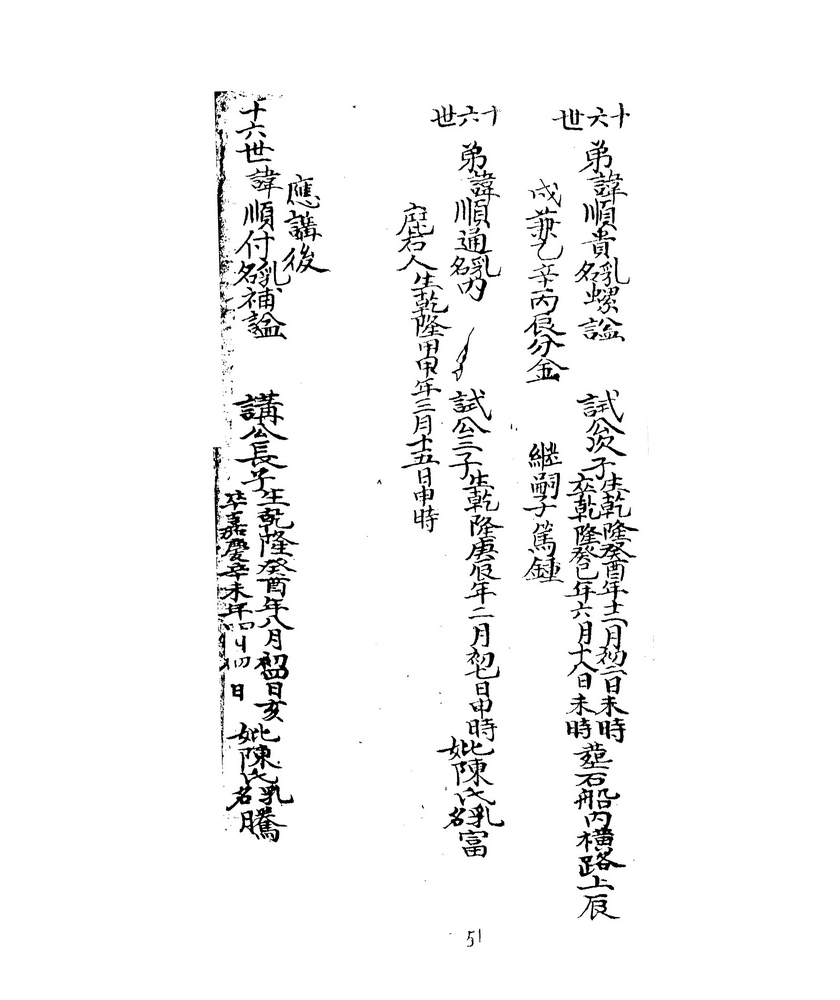 十六世
弟諱順貴乳名螺謚
試公次子生乾隆癸酉年十二月初二日未時
卒乾隆癸巳年六月十八日未時
葬石船內橫路上辰
戌兼乙辛丙辰分金
繼嗣子篤鍾
十六世
弟諱順通乳名內
試公三子生乾隆庚辰年二月初七日申時
妣陳氏乳名富
庭君人生乾隆甲申年三月十五日申時
應講後
十六世諱順付乳名補謚
講公長子生乾隆癸酉年八月初日亥
卒嘉慶辛未年四月初日
妣陳氏乳名騰
51